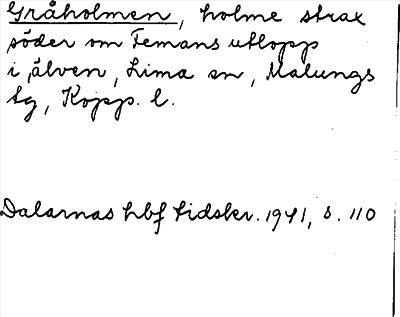 Gråholmen, holme strax
söder om Femans utlopp
i älven, Lima sn, Malungs
tg, Kopp. l.
Dalarnas hbf tidskr. 1941, s. 110